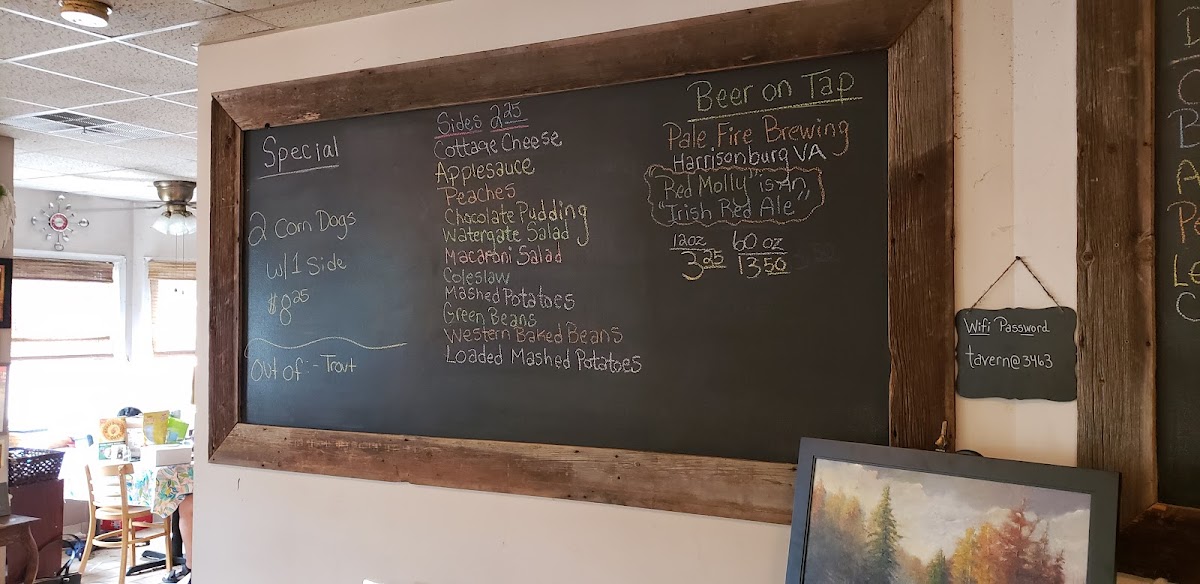 Special
2 Corn Dogs
w/ 1 Side
$8 25
Out of: - Trout
Sides 2 25
Cottage Cheese
Applesauce
Peaches
Chocolate Pudding
Watergate Salad
Macaroni Salad
Coleslaw
Mashed Potatoes
Green Beans
Western Baked Beans
Loaded Mashed Potatoes
Beer on Tap
Pale Fire Brewing
Harrisonburg VA
"Red Molly" is An
"Irish Red Ale"
12oz 60 oz
3 25 13 50
Wifi Password
tavern@3463